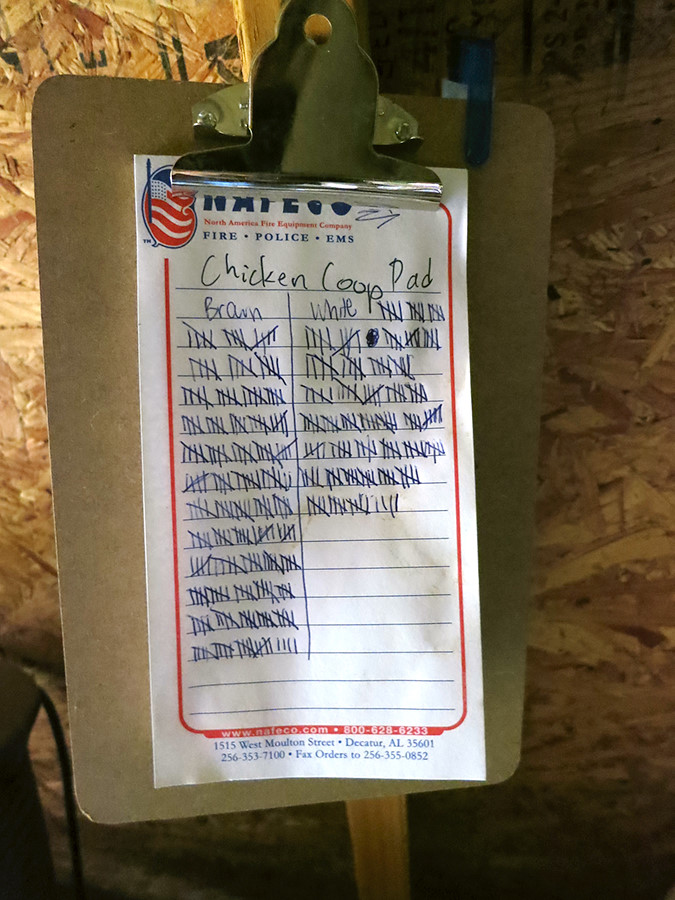 NAFECO
North America Fire Equipment Company
FIRE • POLICE • EMS
Chicken Coop Pad
Brown White
www.nafeco.com • 800-628-6233
1515 West Moulton Street • Decatur, AL 35601
256-353-7100 • Fax Orders to 256-355-0852
TM